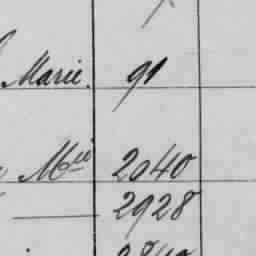 Marie. 91
Mie 2040
2928